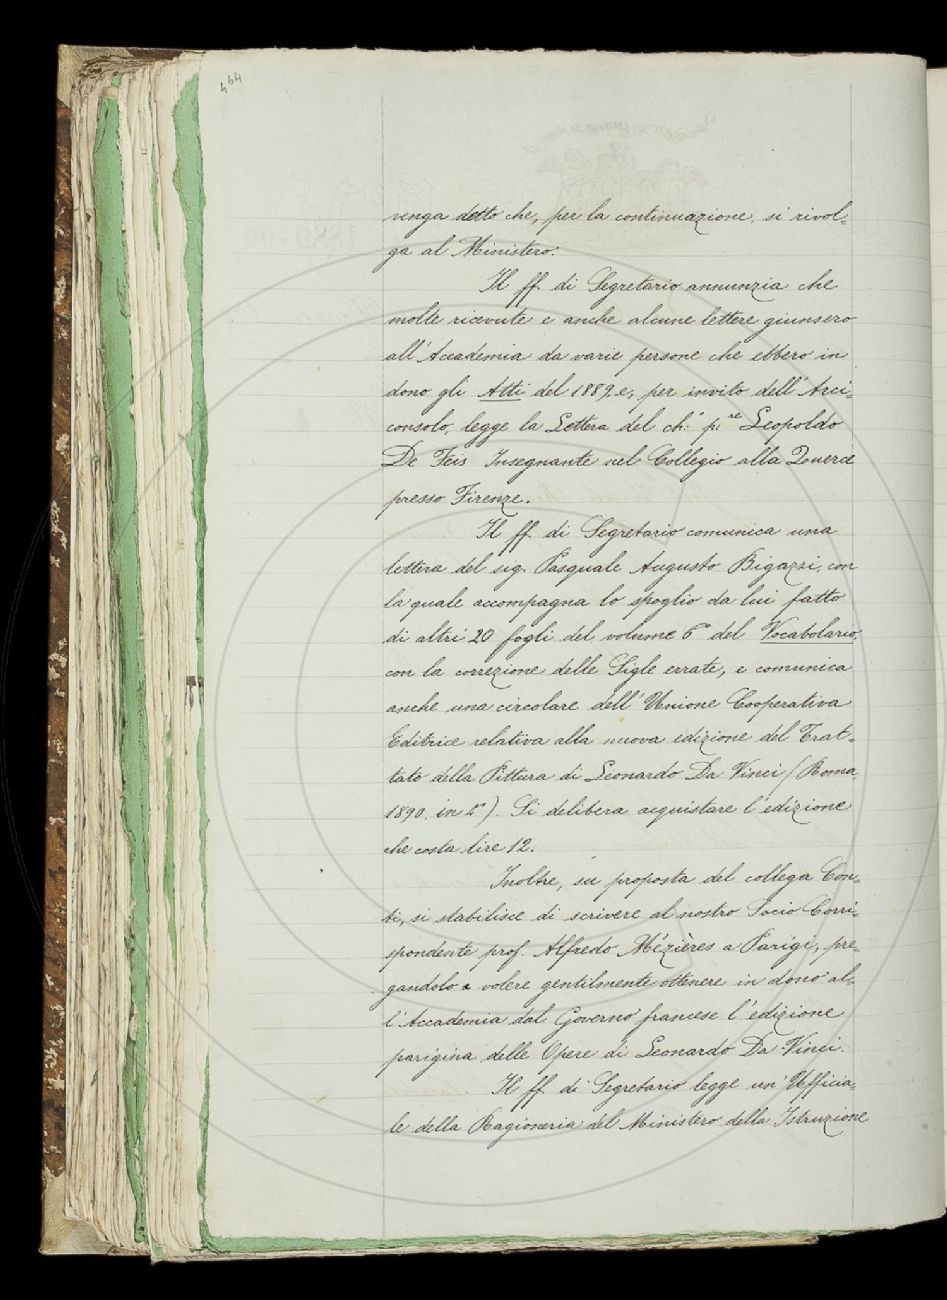 464
venga detto che, per la continuazione, si rivol=
ga al Ministero.
Il ff. di Segretario annunzia che
molte ricevute e anche alcune lettere giunsero
all'Accademia da varie persone che ebbero in
dono gli Atti del 1889, e, per invito dell'Arci=
consolo, legge la Lettera del ch: p.re Leopoldo
De Feis Insegnante nel Collegio alla Querce
presso Firenze.
Il ff. di Segretario comunica una
lettera del sig. Pasquale Augusto Bigazzi, con
la quale accompagna lo spoglio da lui fatto
di altri 20 fogli del volume 6° del Vocabolario,
con la correzione delle Sigle errate, e comunica
anche una circolare dell'Unione Cooperativa
Editrice relativa alla nuova edizione del Trat=
tato della Pittura di Leonardo Da Vinci (Roma,
1890. in 4°). Si delibera acquistare l'edizione
che costa lire 12.
Inoltre, su proposta del collega Con=
ti, si stabilisce di scrivere al nostro Socio Corri=
spondente prof. Alfredo Mézières a Parigi, pre=
gandolo a volere gentilmente ottenere in dono al=
l'Accademia dal Governo francese l'edizione
parigina delle Opere di Leonardo Da Vinci.
Il ff. di Segretario legge un'Officia=
le della Ragioneria del Ministero della Istruzione